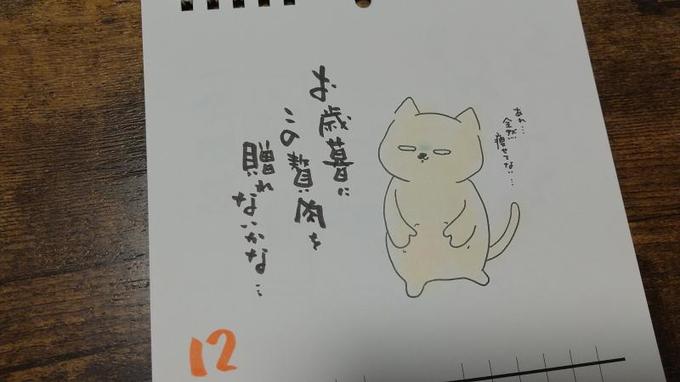 お歳暮に
この贅肉を
贈れないかな…
あれ…
全然
痩せてない…
12